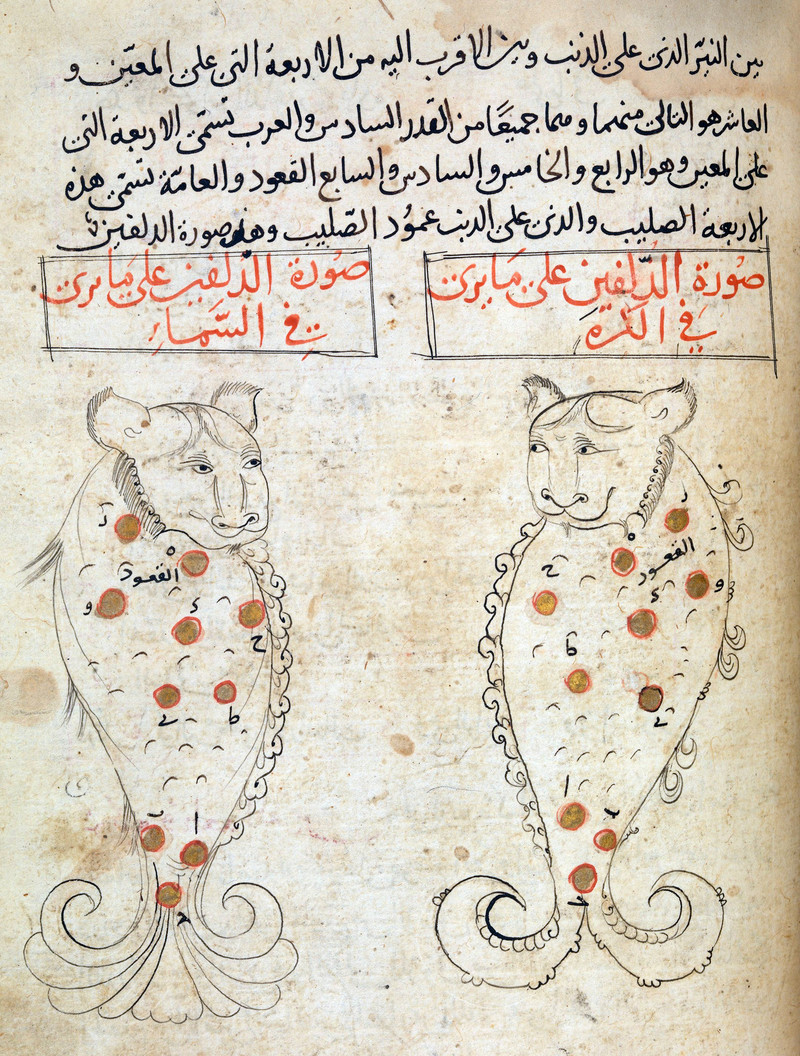 بين النيّر الذى على الذنب وبين الاقرب اليه من الاربعة التى على المعيّن و
العاشر هو التالى منهما وهما جميعًا من القدر السادس والعرب تسمّى الاربعة التى
على المعين وهو الرابع والخامس والسادس والسابع القعود والعامّة تسمّى هذه
الاربعة الصليب والذى على الذنب عمود الصّليب وهذه صورة الدلفين
صُورَة الدّلفين على مَا يرى
فِى الكرَة
صُورة الدّلفين على مَا يرى
فِى السَّماءِ
القعود
القعود